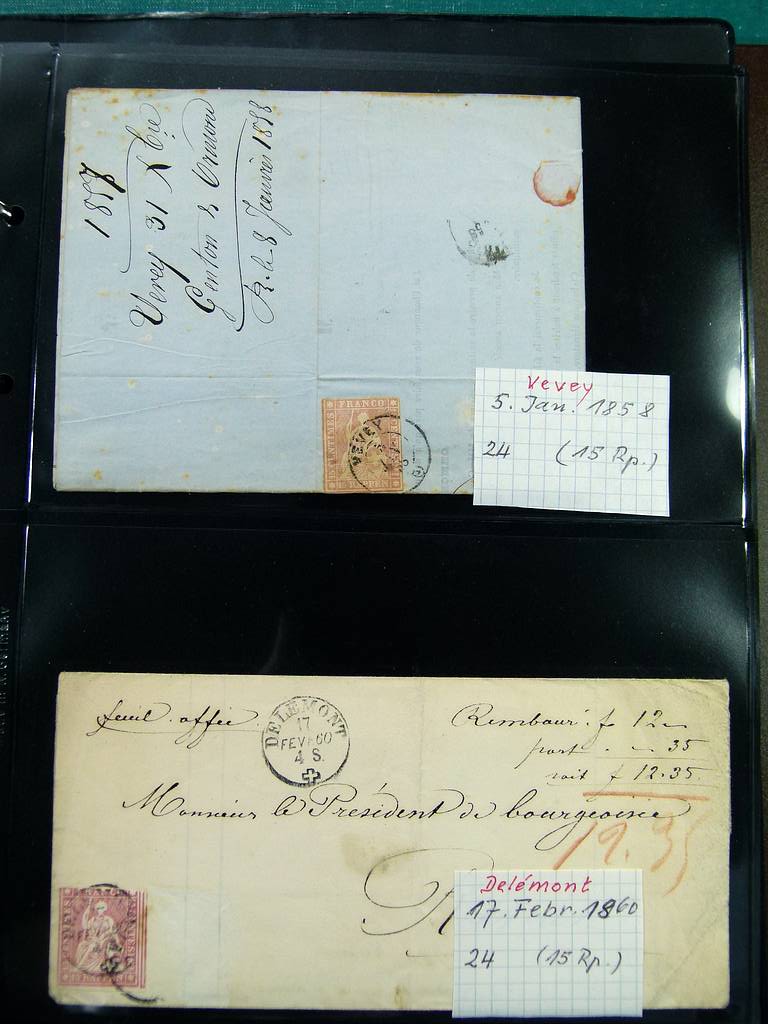 1857
Vevey 31 Xbre
Genton & Ormond
R. le 8 Janvier 1858
FRANCO
CENTIMES
RAPPEN
VEVEY
Vevey
5. Jan. 1858
24 (15 Rp.)
feuil. offic.
DELÉMONT
17
FEVR 60
4 S.
Rembour.^t f 12 —
port . — 35
soit f 12.35.
Monsieur le Président de bourgeoisie
12.35
Delémont
17. Febr. 1860
24 (15 Rp.)